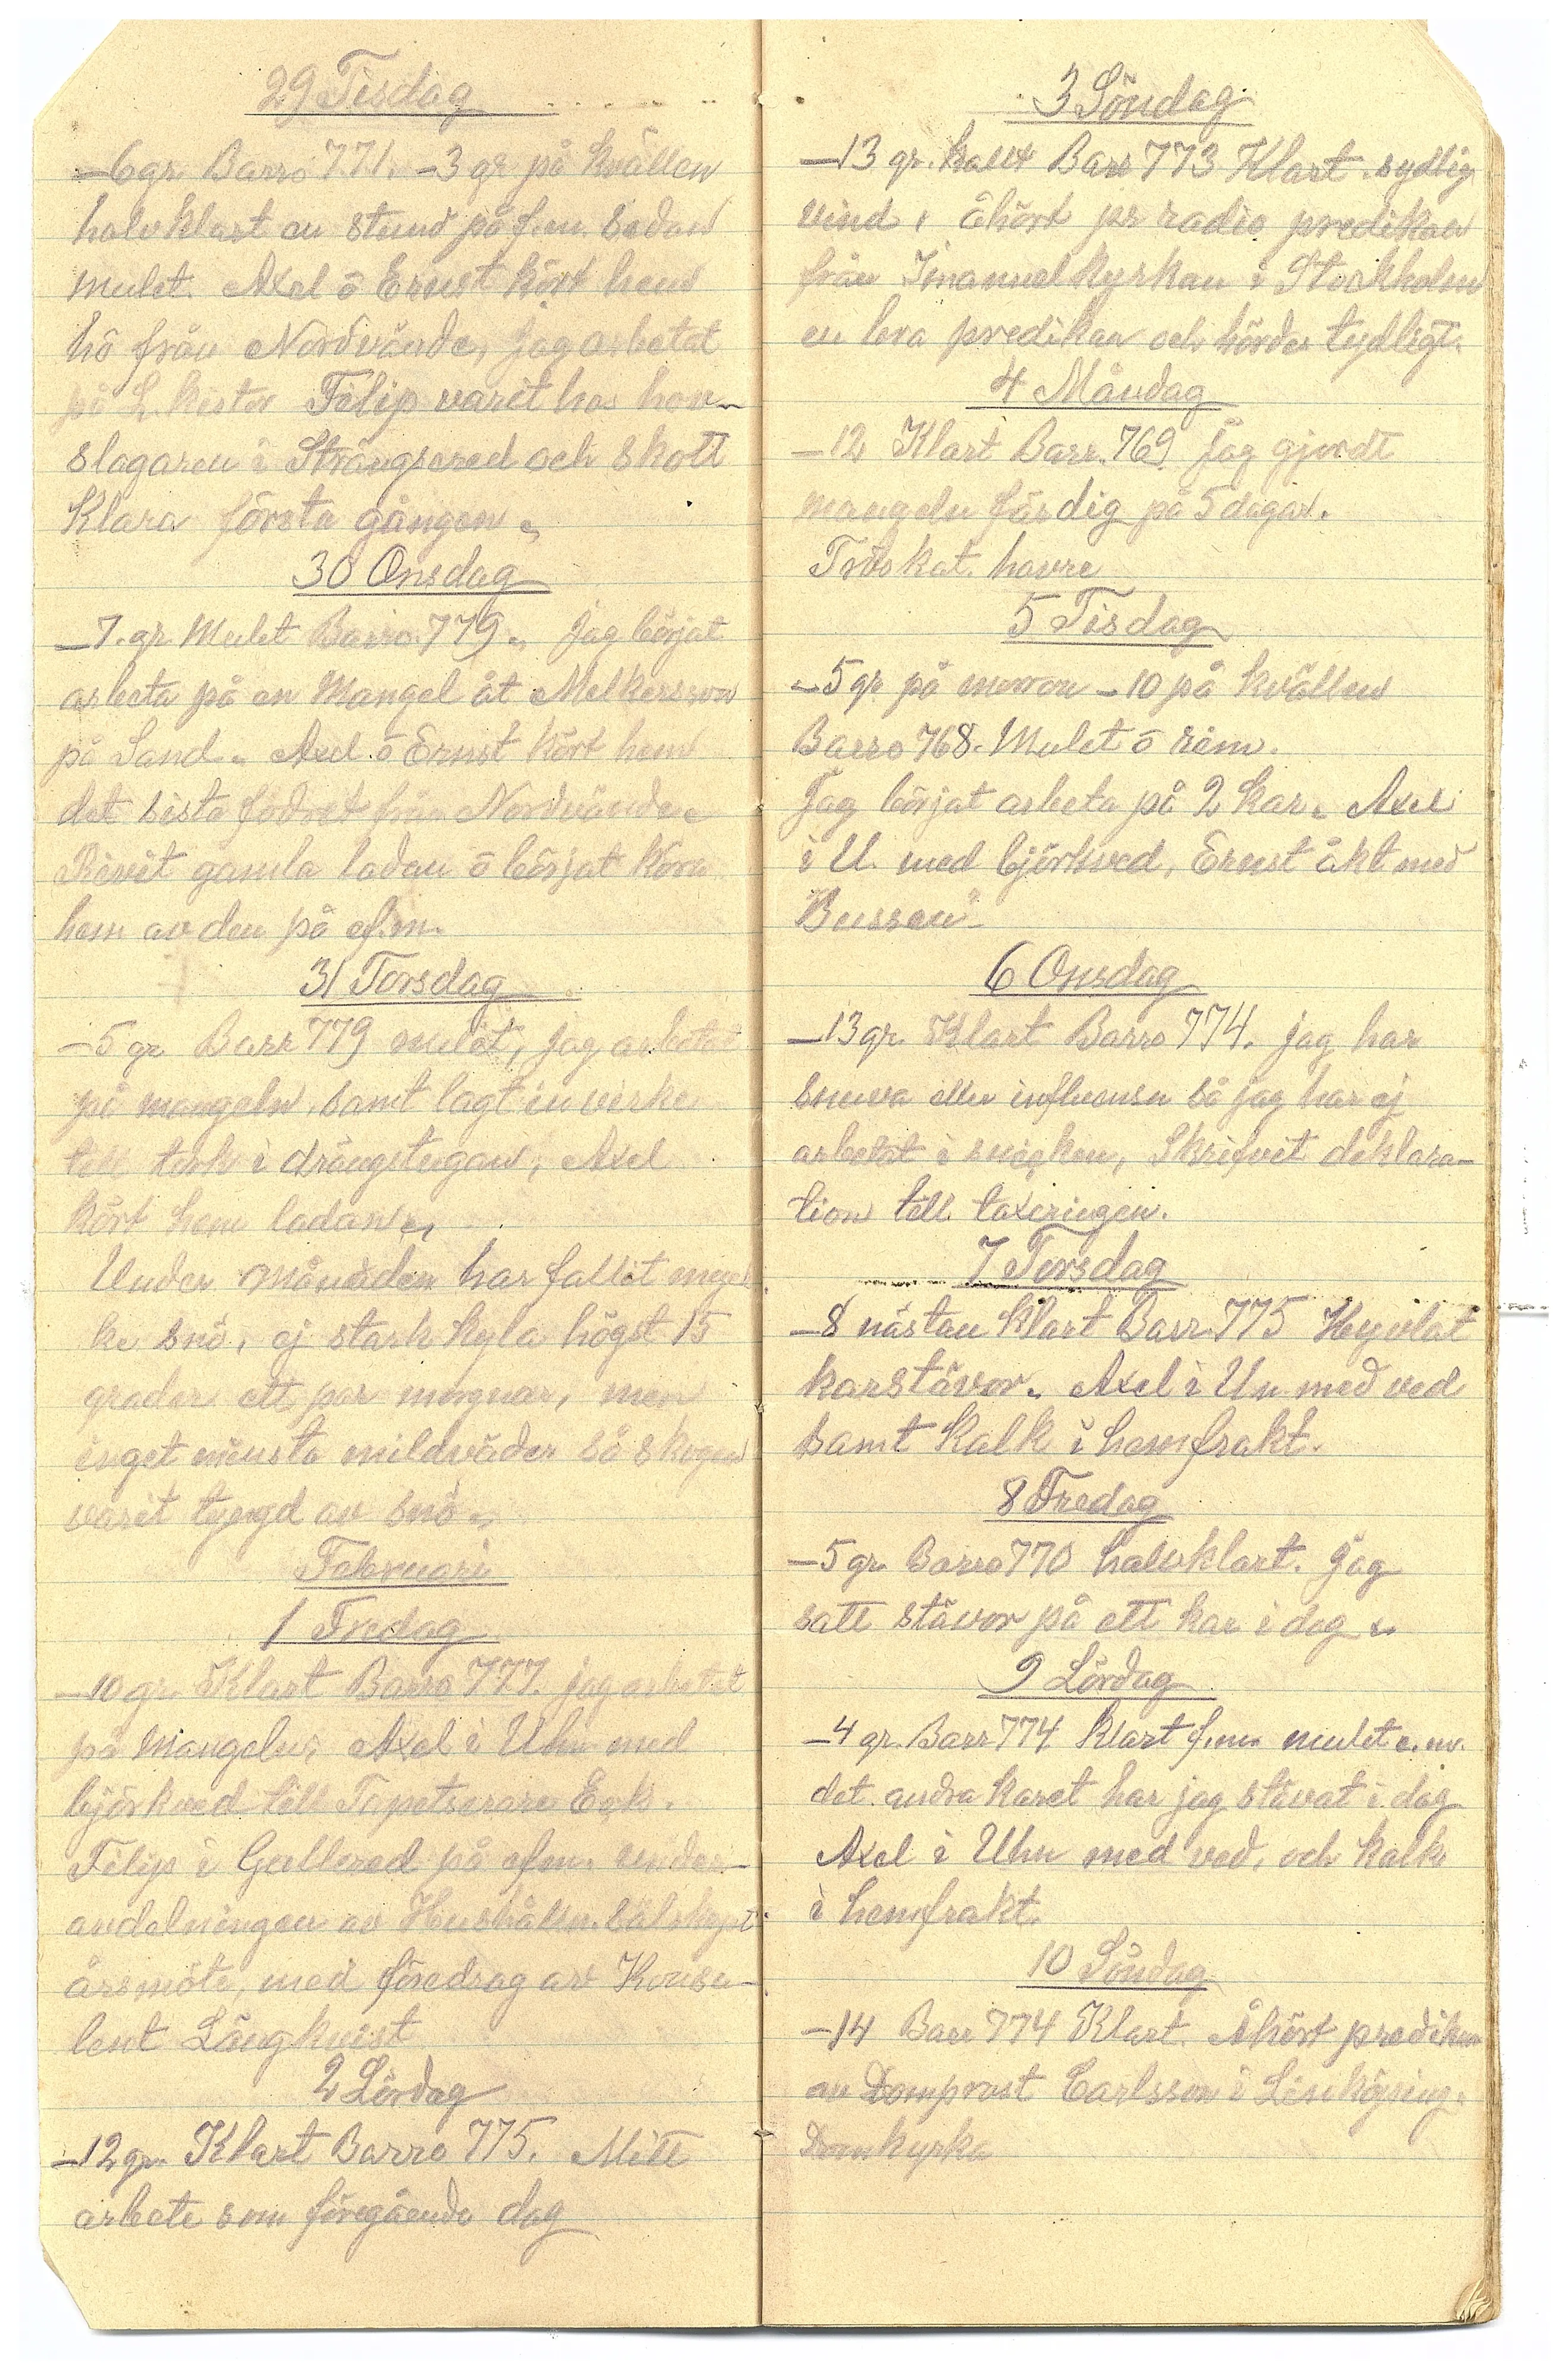 29 Tisdag
–6 gr. Barro 771. –3 gr på kvällen
halvklart en stund på f.m. sedan
mulet. Axel ö Ernst kört hem
hö från Nordvände, jag arbetat
på L. kistor Filip varit hos hov-
slagaren i Strängsered och skott
Klara första gången.
30 Onsdag
–7. gr. Mulet Barro. 779. Jag börjat
arbeta på en Mangel åt Melkersson
på Sand. Axel ö Ernst kört hem
det sista fodret från Nordvände.
Rivit gamla ladan ö börjat köra
hem av den på ef.m.
31 Torsdag
–5 gr Barr 779 mulet, jag arbetat
på mangeln. samt lagt in virke
till tork i drängstugan, Axel
kört hem ladan.
Under månaden har fallit myc
ke snö, ej stark kyla högst 15
grader ett par morgnar, men
inget minsta mildväder så skogen
varit tyngd av snö.
Februari
1 Fredag
–10 gr. Klart Barro 777. jag arbetat
på Mangeln, Axel i Uhn med
björkved till Tapetserare Eek.
Filip i Gullered på efm. under-
avdelningen av Hushålln. sälskapet
årsmöte, med föredrag av Konsu-
lent Långkvist
2 Lördag
–12 gr. Klart Barro 775. Mitt
arbete som föregående dag
3 Söndag
–13 gr. kallt Barr 773 Klart. sydlig
vind, åhört pr radio predikan
från Imanuelkyrkan i Stockholm
en bra predikan och hördes tydligt.
4 Måndag
–12 Klart Barr. 769 Jag gjordt
mangeln färdig på 5 dagar.
havre
5 Tisdag
–5 gr på morron –10 på kvällen
Barro 768. Mulet ö rim.
Jag börjat arbeta på 2 Kar. Axel
i U. med björkved, Ernst åkt med
"Bussen"
6 Onsdag
–13 gr. Klart Barro 774. jag har
snuva eller influensa så jag har ej
arbetat i snicken, Skrifvit deklara-
tion till taxeringen.
7 Torsdag
–8 nästan klart Barr. 775 Hyvlat
karstävor. Axel i Un med ved
samt Kalk i hemfrakt.
8 Fredag
–5 gr. Barro 770 halvklart. Jag
satt stävor på ett kar i dag.
9 Lördag
–4 gr. Barr 774 Klart f.m. mulet e.m.
det andra karet har jag stävat i dag
Axel i Uhn med ved, och kalk
i hemfrakt.
10 Söndag
–14 Barr 774 Klart. Åhört predikan
av Domprost Carlsson i Linköping.
Domkyrka